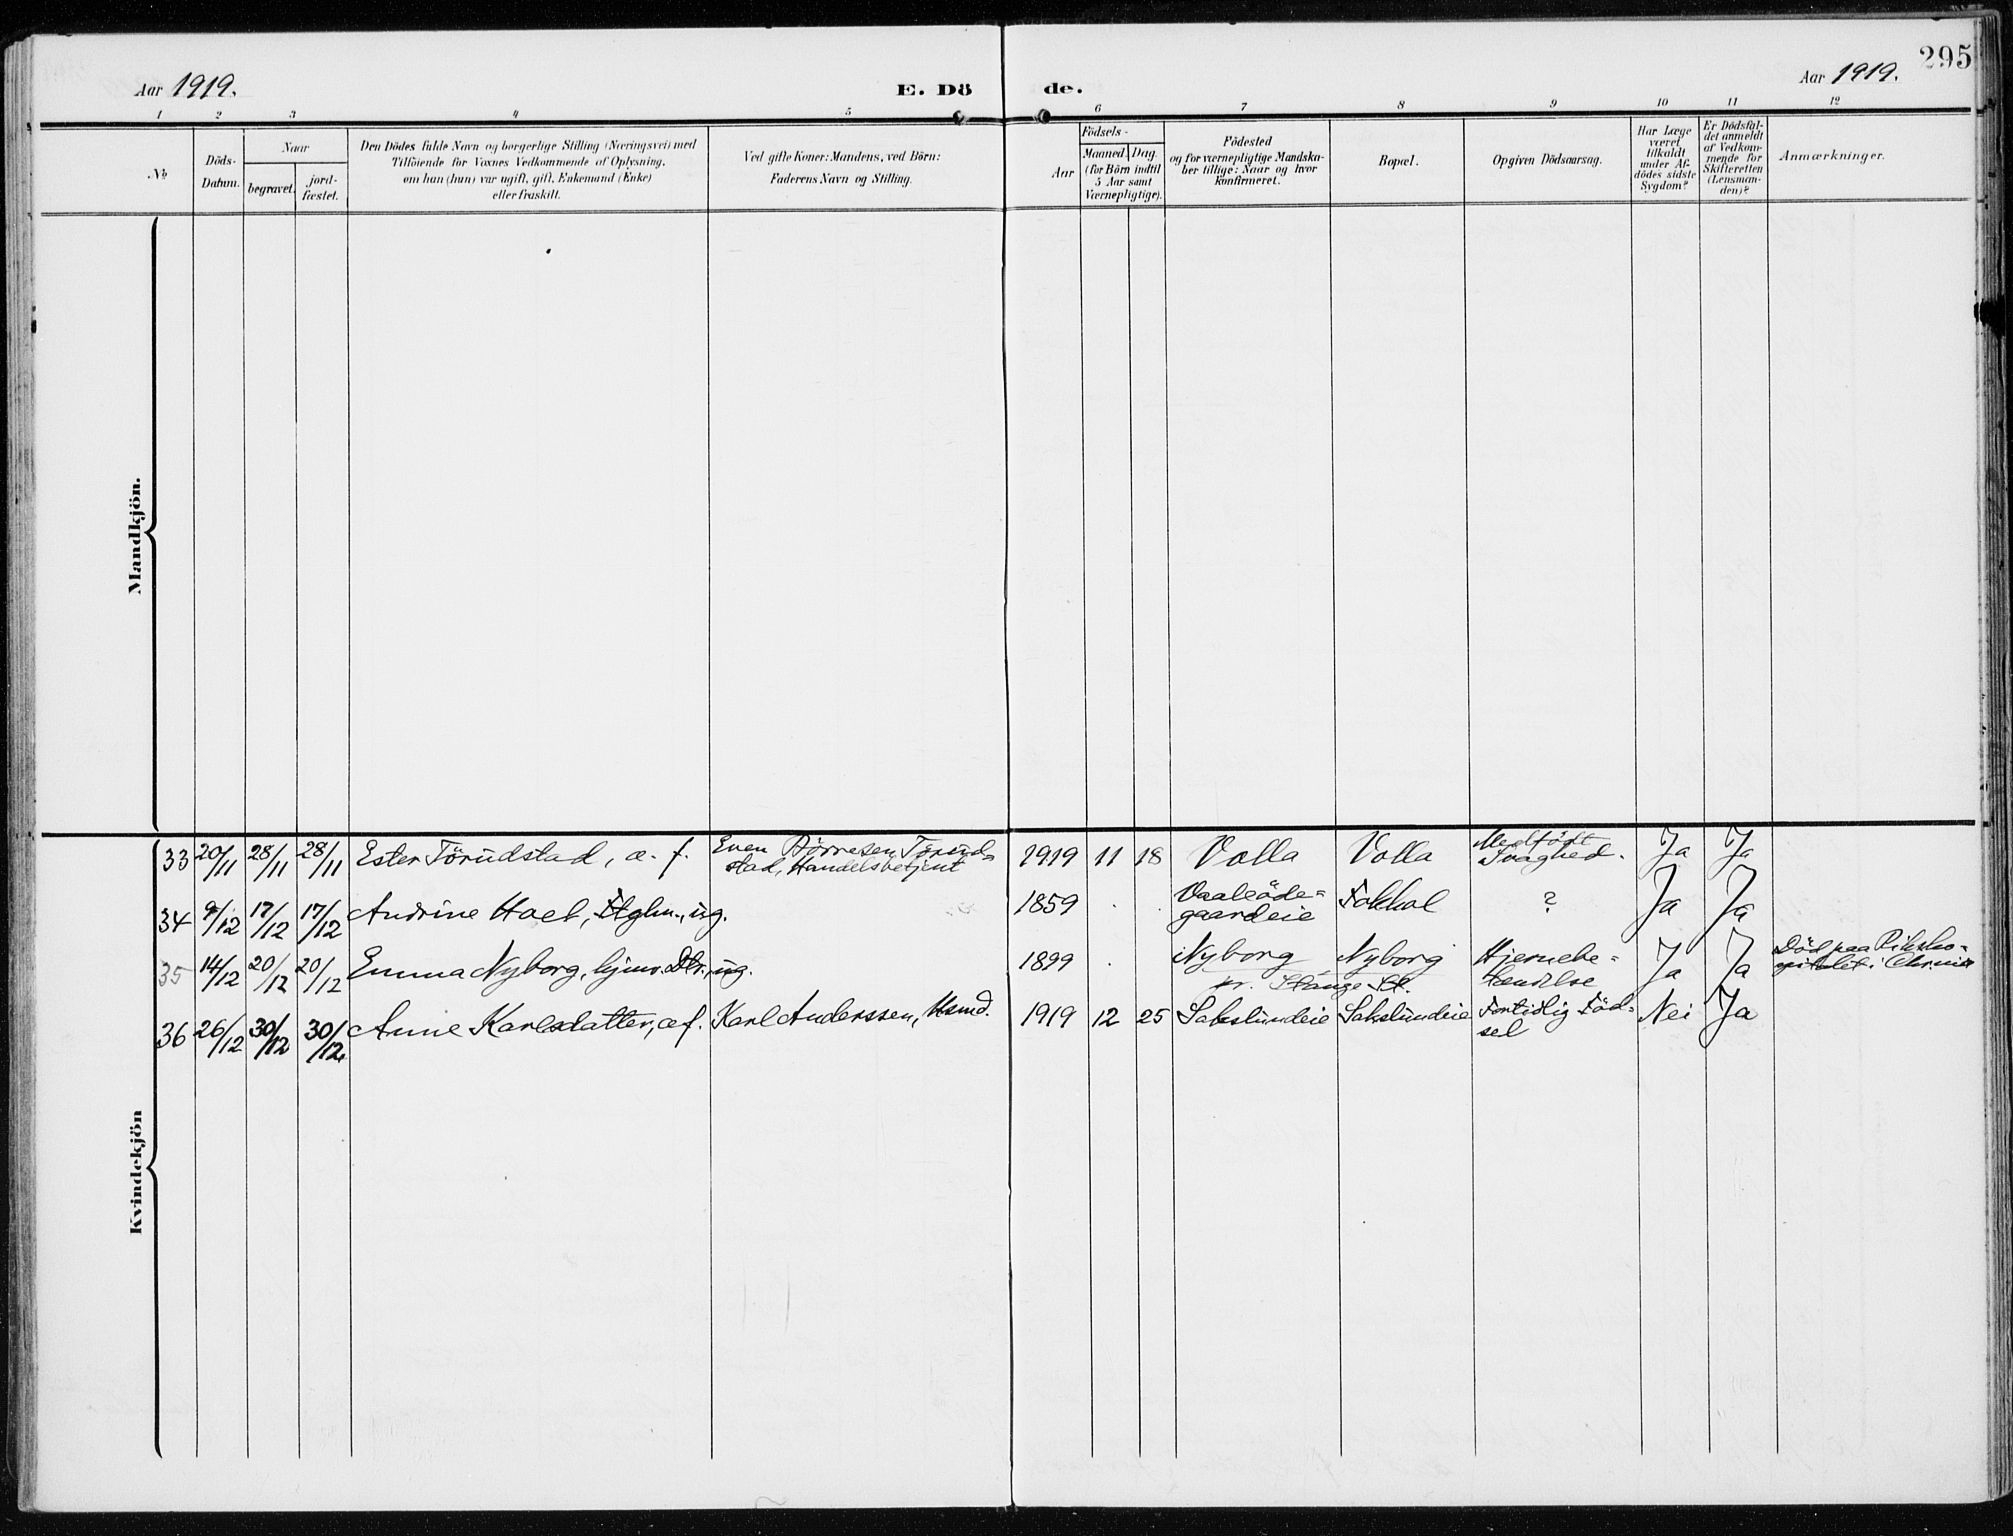 295
Aar 1919.
E. Dö de.
Aar 1919.
1 2 3 4 5 6 7 8 9 10 11 12
No
Döds-
Datum.
Naar
begravet.
jord-
fæstet.
Den Dödes fulde Navn og borgerlige Stilling (Næringsvei) med
Tilföiende for Voxnes Vedkommende af Oplysning,
om han (hun) var ugift, gift, Enkemand (Enke)
eller fraskilt.
Ved gifte Koner: Mandens, ved Börn:
Faderens Navn og Stilling.
Födsels-
Aar
Maaned. Dag.
(for Börn indtil
5 Aar samt
Værnepligtige).
Födested
og for værnepligtige Mandska-
ber tillige: Naar og hvor
konfirmeret.
Bopæl.
Opgiven Dödsaarsag.
Har Læge
været
tilkaldt
under Af-
dödes sidste
Sygdom?
Er Dödsfal-
det anmeldt
af Vedkom-
mende for
Skifteretten
(Lensman-
den)?
Anmærkninger.
Mandkjön.
Kvindekjön
33 20/11 28/11 28/11 Ester Törudstad, æ. f. Even Börresen Törud-
stad, Handelsbetjent 1919 11 18 Volla Volla Medfödt
Svaghed. Ja Ja
34 9/12 17/12 17/12 Andrine Hoel, ug. 1859 Vaaleöde-
gaardeie Fokhol ? Ja Ja
35 14/12 20/12 20/12 Emma Nyborg, hjmv. Dtr., ug. 1899 Nyborg Nyborg
pr. Stange St. Hjernebe-
tændelse Ja Ja Död paa Riksho-
spitalet i Chrnia
36 26/12 30/12 30/12 Anne Karlsdatter, æf. Karl Anderssen, Husmd. 1919 12 25 Sakslundeie Sakslundeie Fortidlig Föd-
sel Nei Ja